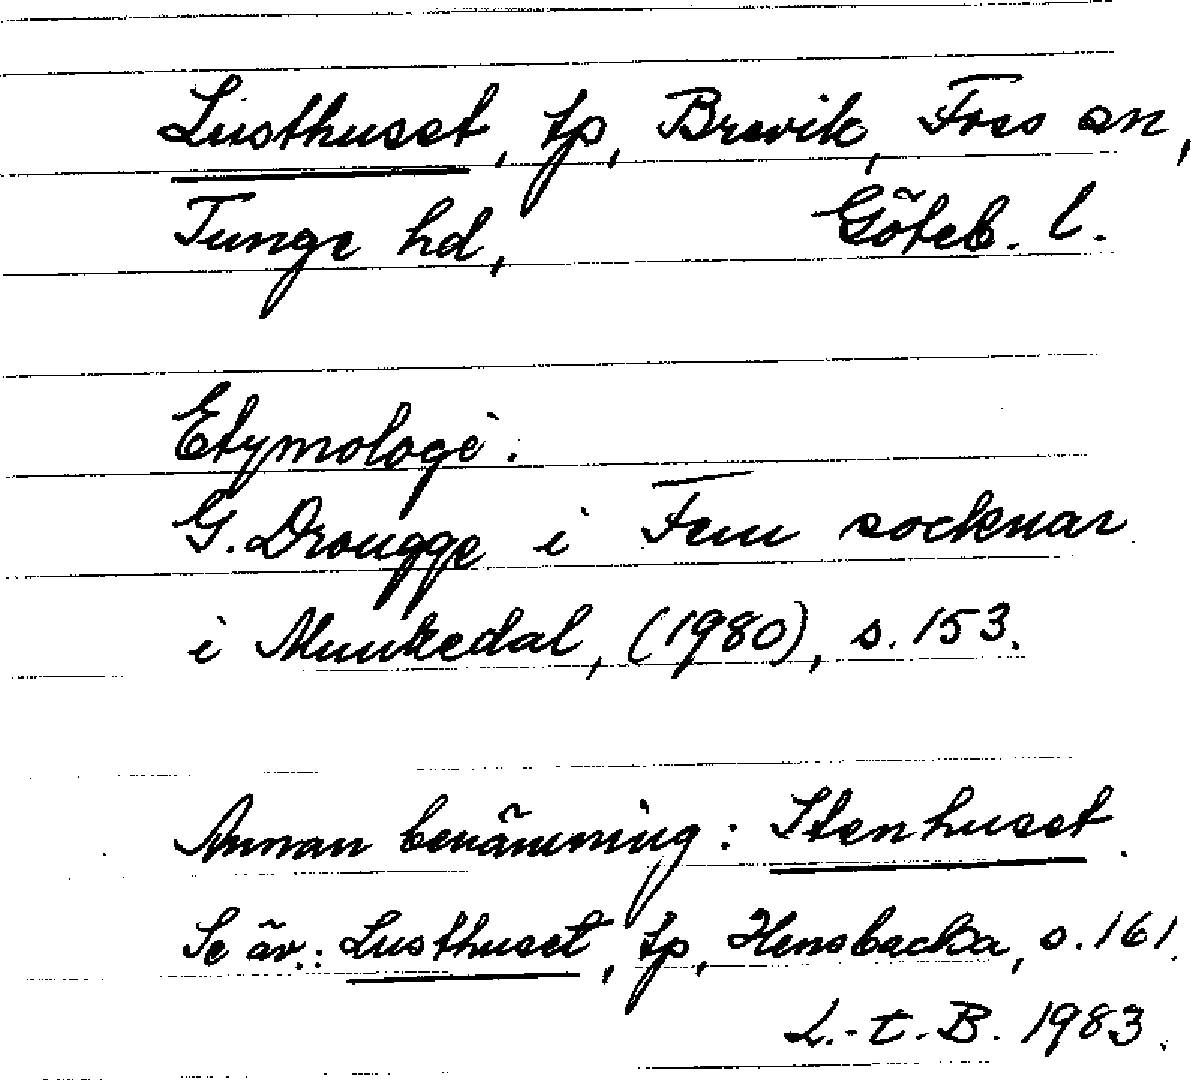 Lusthuset, tp, Brevik, Foss sn,
Tunge hd, Göteb. l.
Etymologi:
G. Drougge i Fem socknar
i Munkedal, (1980), s. 153.
Annan benämning: Stenhuset.
Se äv.: Lusthuset, tp, Hensbacka, s. 161.
L.-t.-B. 1983.